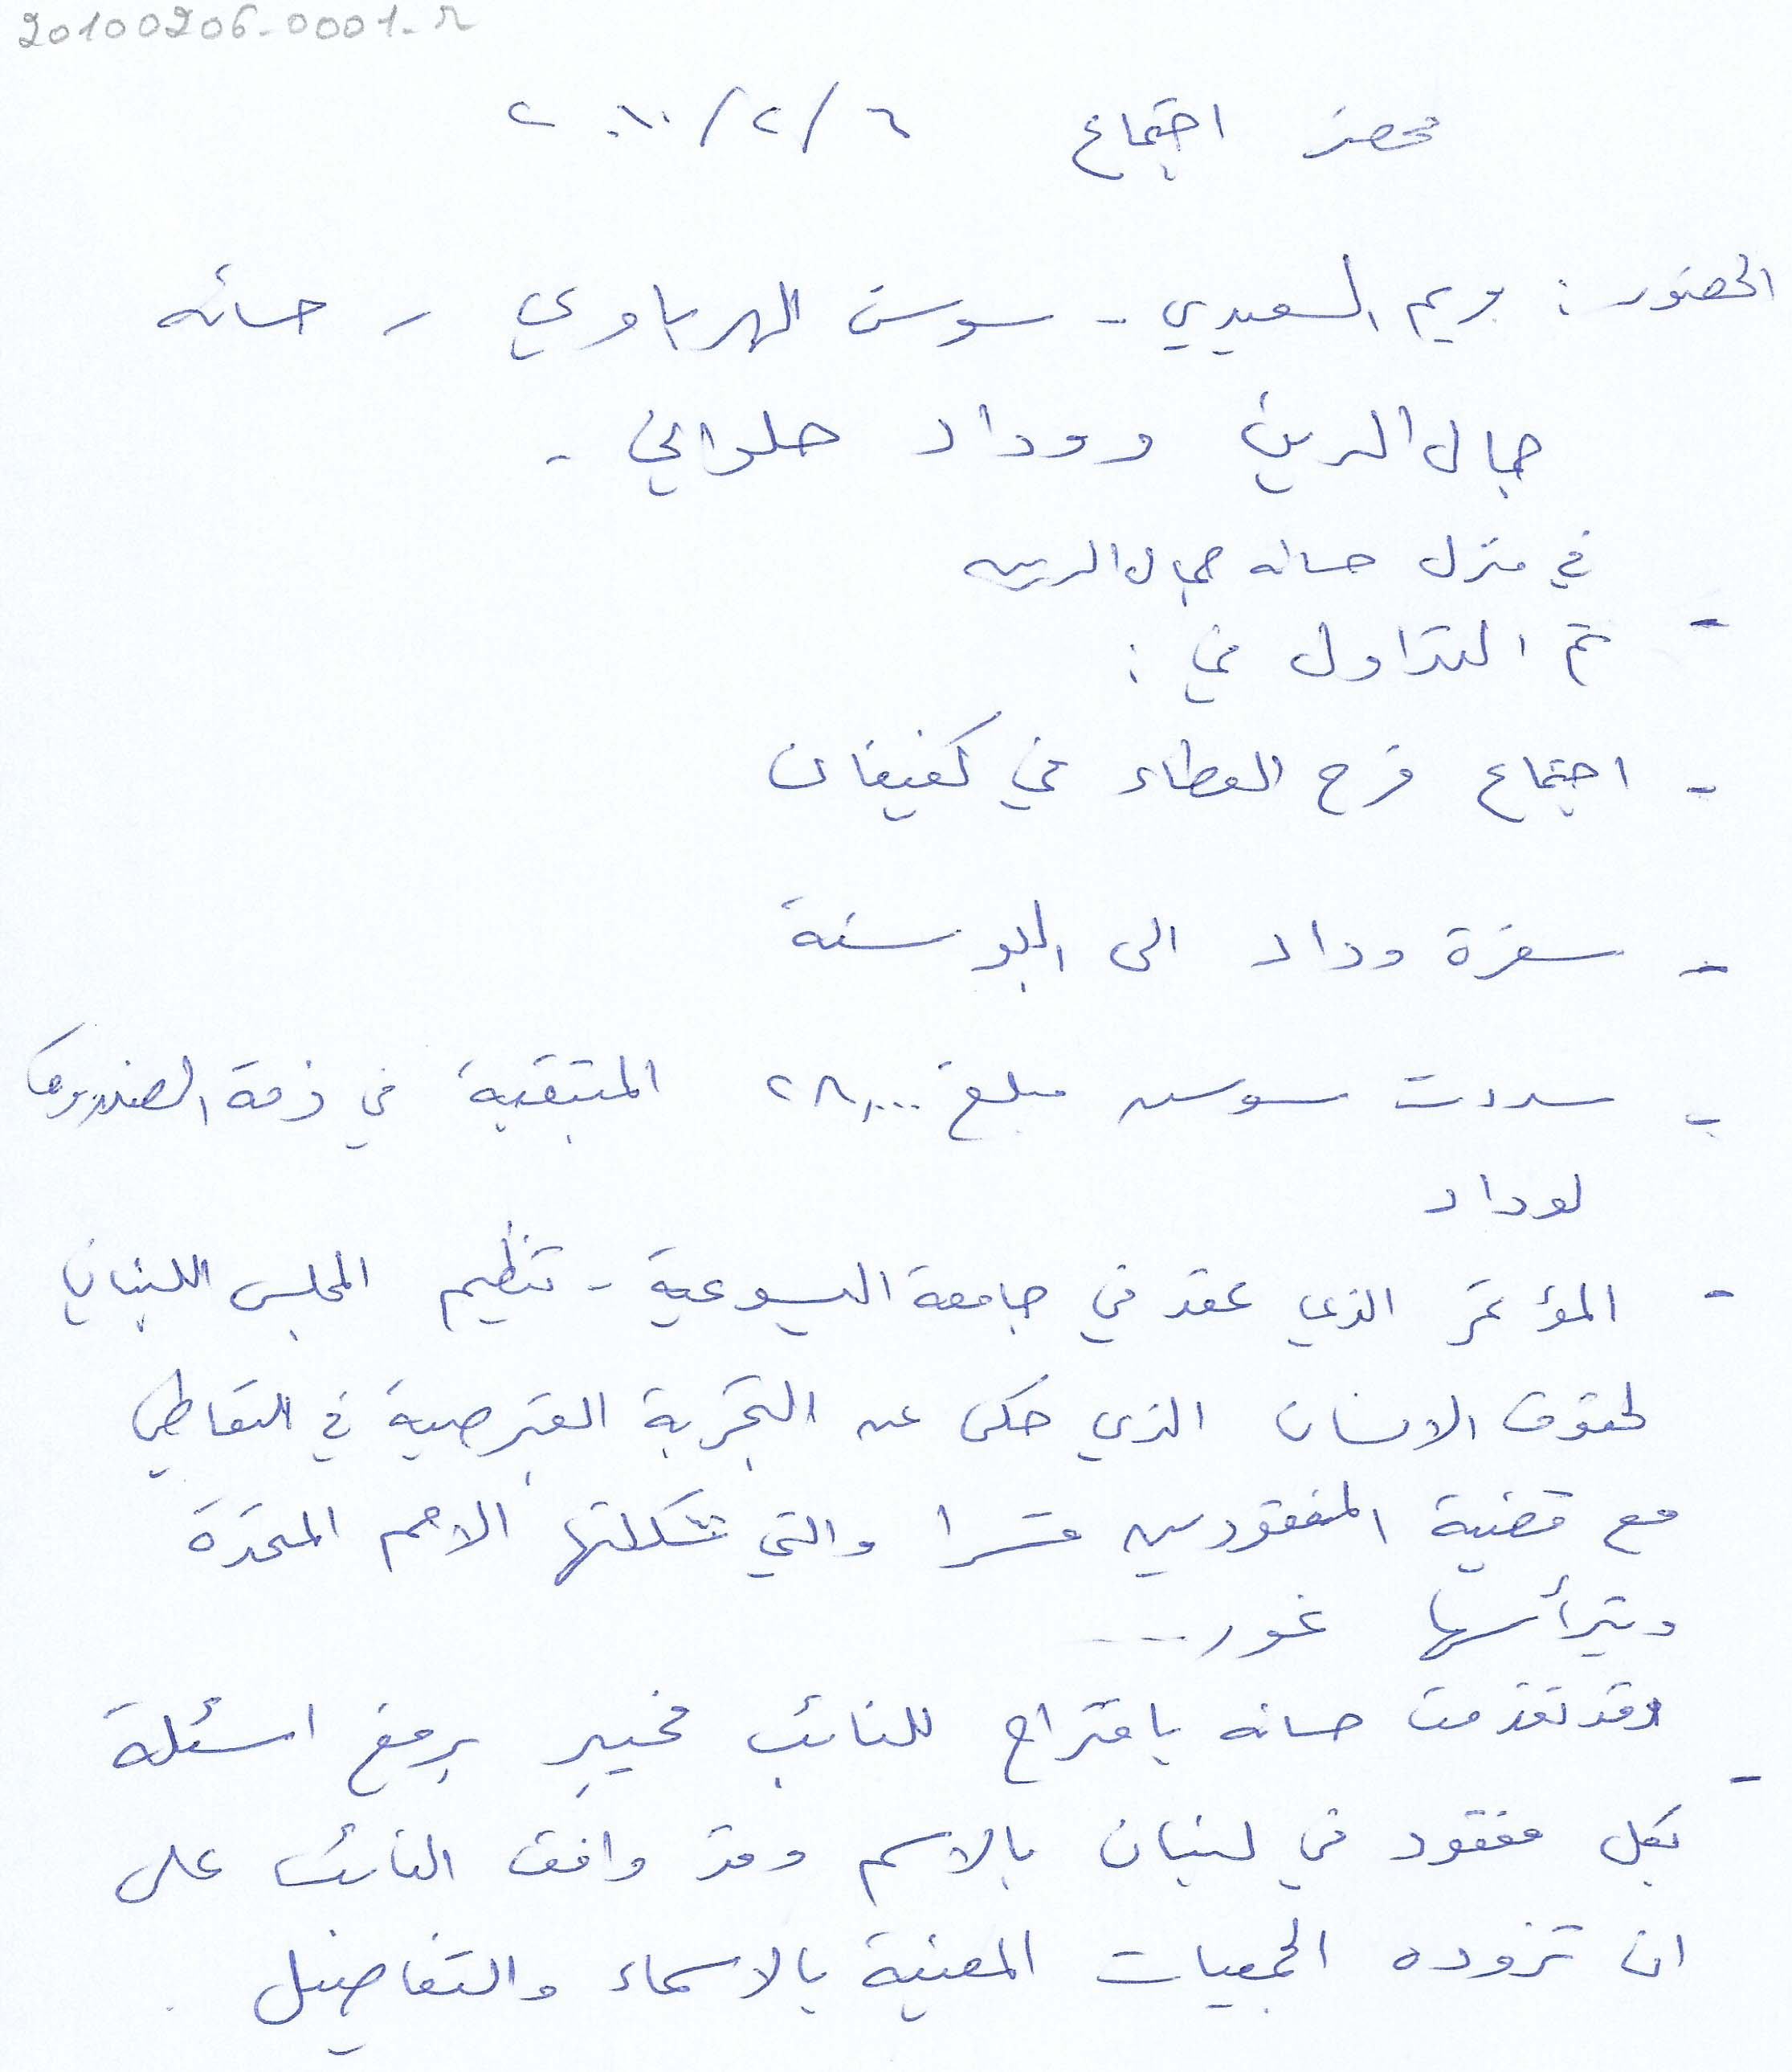 20100206-0001-r
محضر اجتماع ٦/٢/٢٠١٠
الحضور : مريم السعيدي - سوسن الهرباوي - حسانه
جمال الدين ووداد حلواني -
في منزل حسانه جمال الدين
- تم التداول في :
- اجتماع فرح العطاء في كفيفان
- سفرة وداد الى البوسنة
- سددت سوسن مبلغ ٢٨,٠٠٠ المتبقية في ذمة الصندوق
لوداد
- المؤتمر الذي عقد في جامعة اليسوعية - تنظيم المجلس اللبناني
لحقوق الانسان الذي حكى عن التجربة القبرصية في التعاطي
مع قضية المفقودين قسرا والتي شكلتها الامم المتحدة
ويترأسها غور ...
- وقد تقدمت حسانه باقتراح للنائب مخيبر برفع اسئلة
بكل مفقود في لبنان بالاسم وقد وافق النائب على
ان تزوده الجمعيات المعنية بالاسماء والتفاصيل .